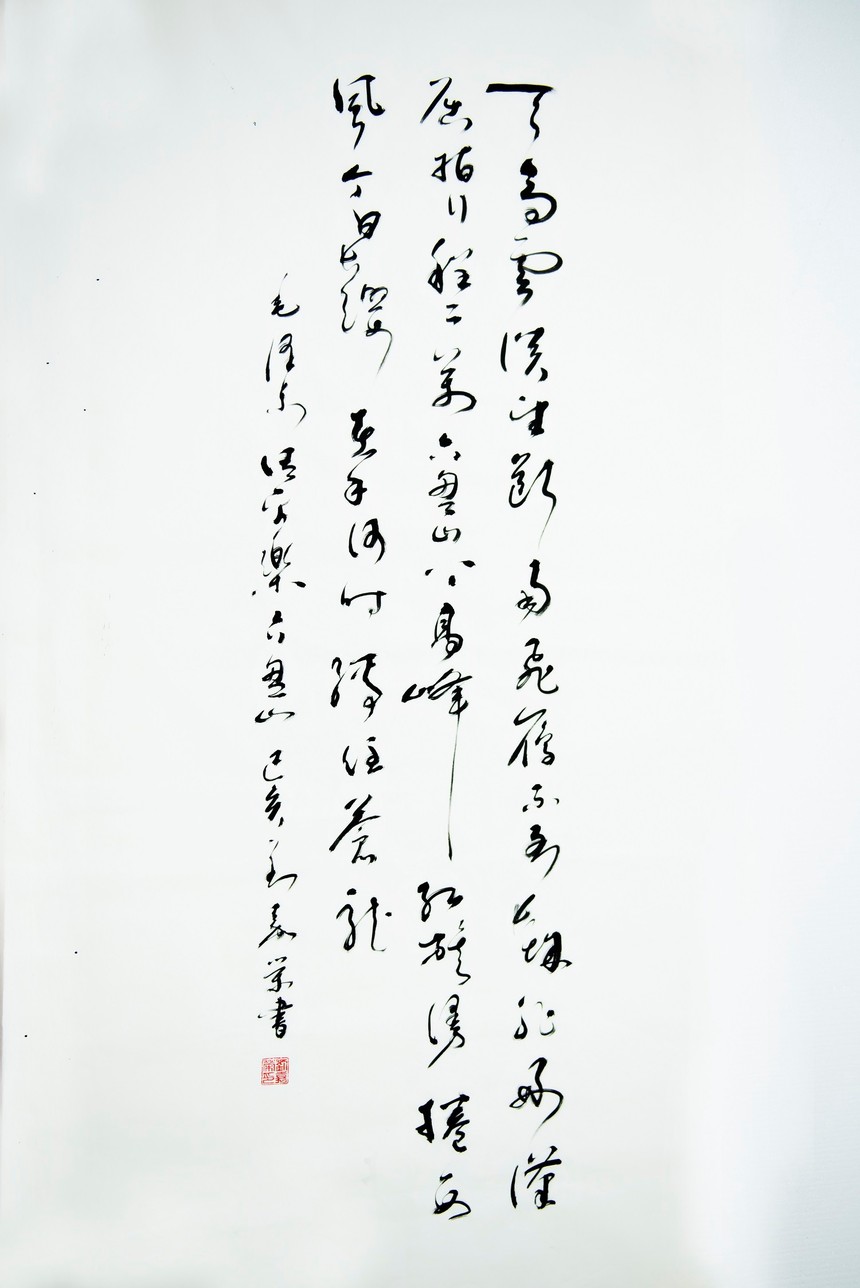 天高雲淡望斷南飛雁不到長城非好漢
屈指行程二萬六盤山上高峰紅旗漫捲西
風今日長纓在手何時縛住蒼龍
毛澤東清平樂六盤山己亥劉嘉榮書